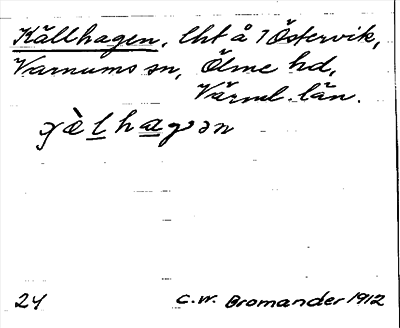 Källhagen, lht å 1 Östervik,
Varnums sn, Ölme hd,
Värml. län.
24
C.W. Bromander 1912